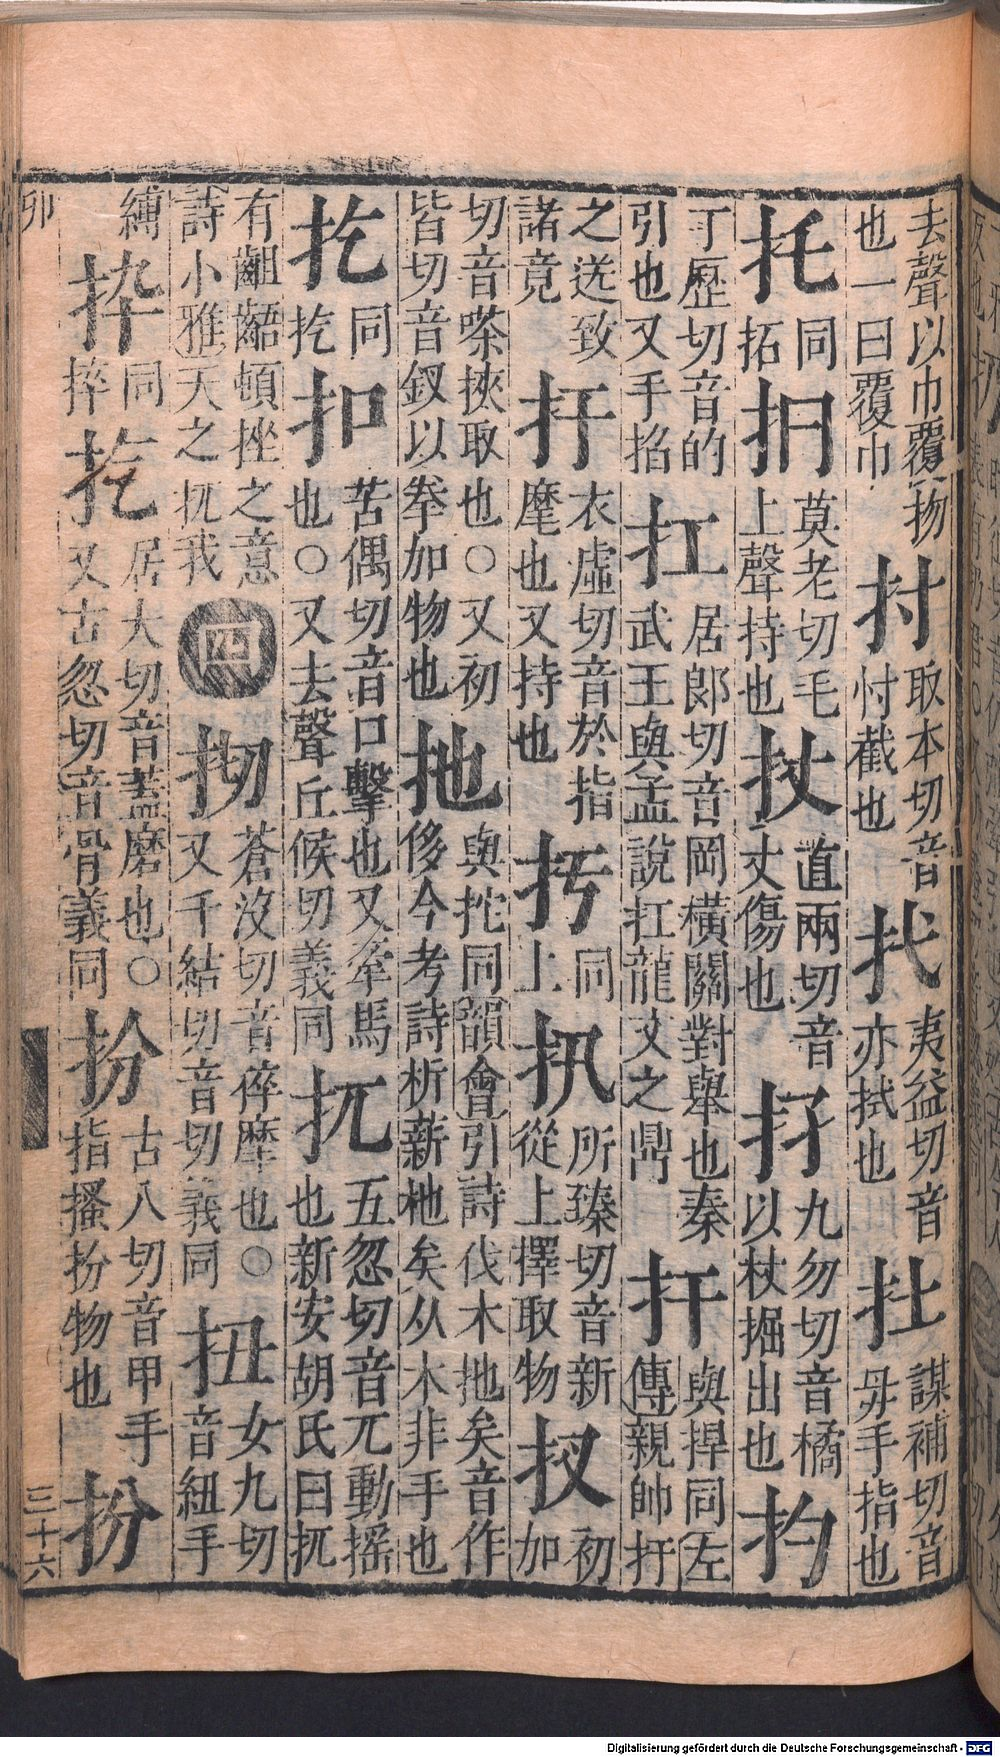 去聲以巾覆物也一曰覆巾 取本切音忖截也 夷益切音亦拭也 謀補切音毋手指也
托 同拓 莫老切毛上聲持也 扙 直兩切音丈傷也 九勿切音橘以杖掘出也 扚
丁歷切音的引也又手掐 扛 居郎切音岡橫關對舉也秦武王與孟說扛龍文之鼎 扞 與捍同左傳親帥扞
之送致諸竟 扜 衣虛切音於指麾也又持也 扝 同上 扟 所臻切音新從上擇取物 扠 初加
切音嗏挾取也○又初皆切音釵以拳加物也 扡 與拕同韻會引詩伐木扡矣音作侈今考詩析薪杝矣从木非手也
扢 同扢 扣 苦偶切音口擊也又牽馬也○又去聲丘候切義同 扤 五忽切音兀動搖也新安胡氏曰扤
有齟齬頓挫之意詩小雅天之扤我 四 蒼沒切音倅摩也○又千結切音切義同 扭 女九切音紐手
縛 同捽 扢 居大切音蓋磨也○又古忽切音骨義同 扴 古八切音甲手指搔扴物也 扮
卯 三十六
Digitalisierung gefördert durch die Deutsche Forschungsgemeinschaft - DFG